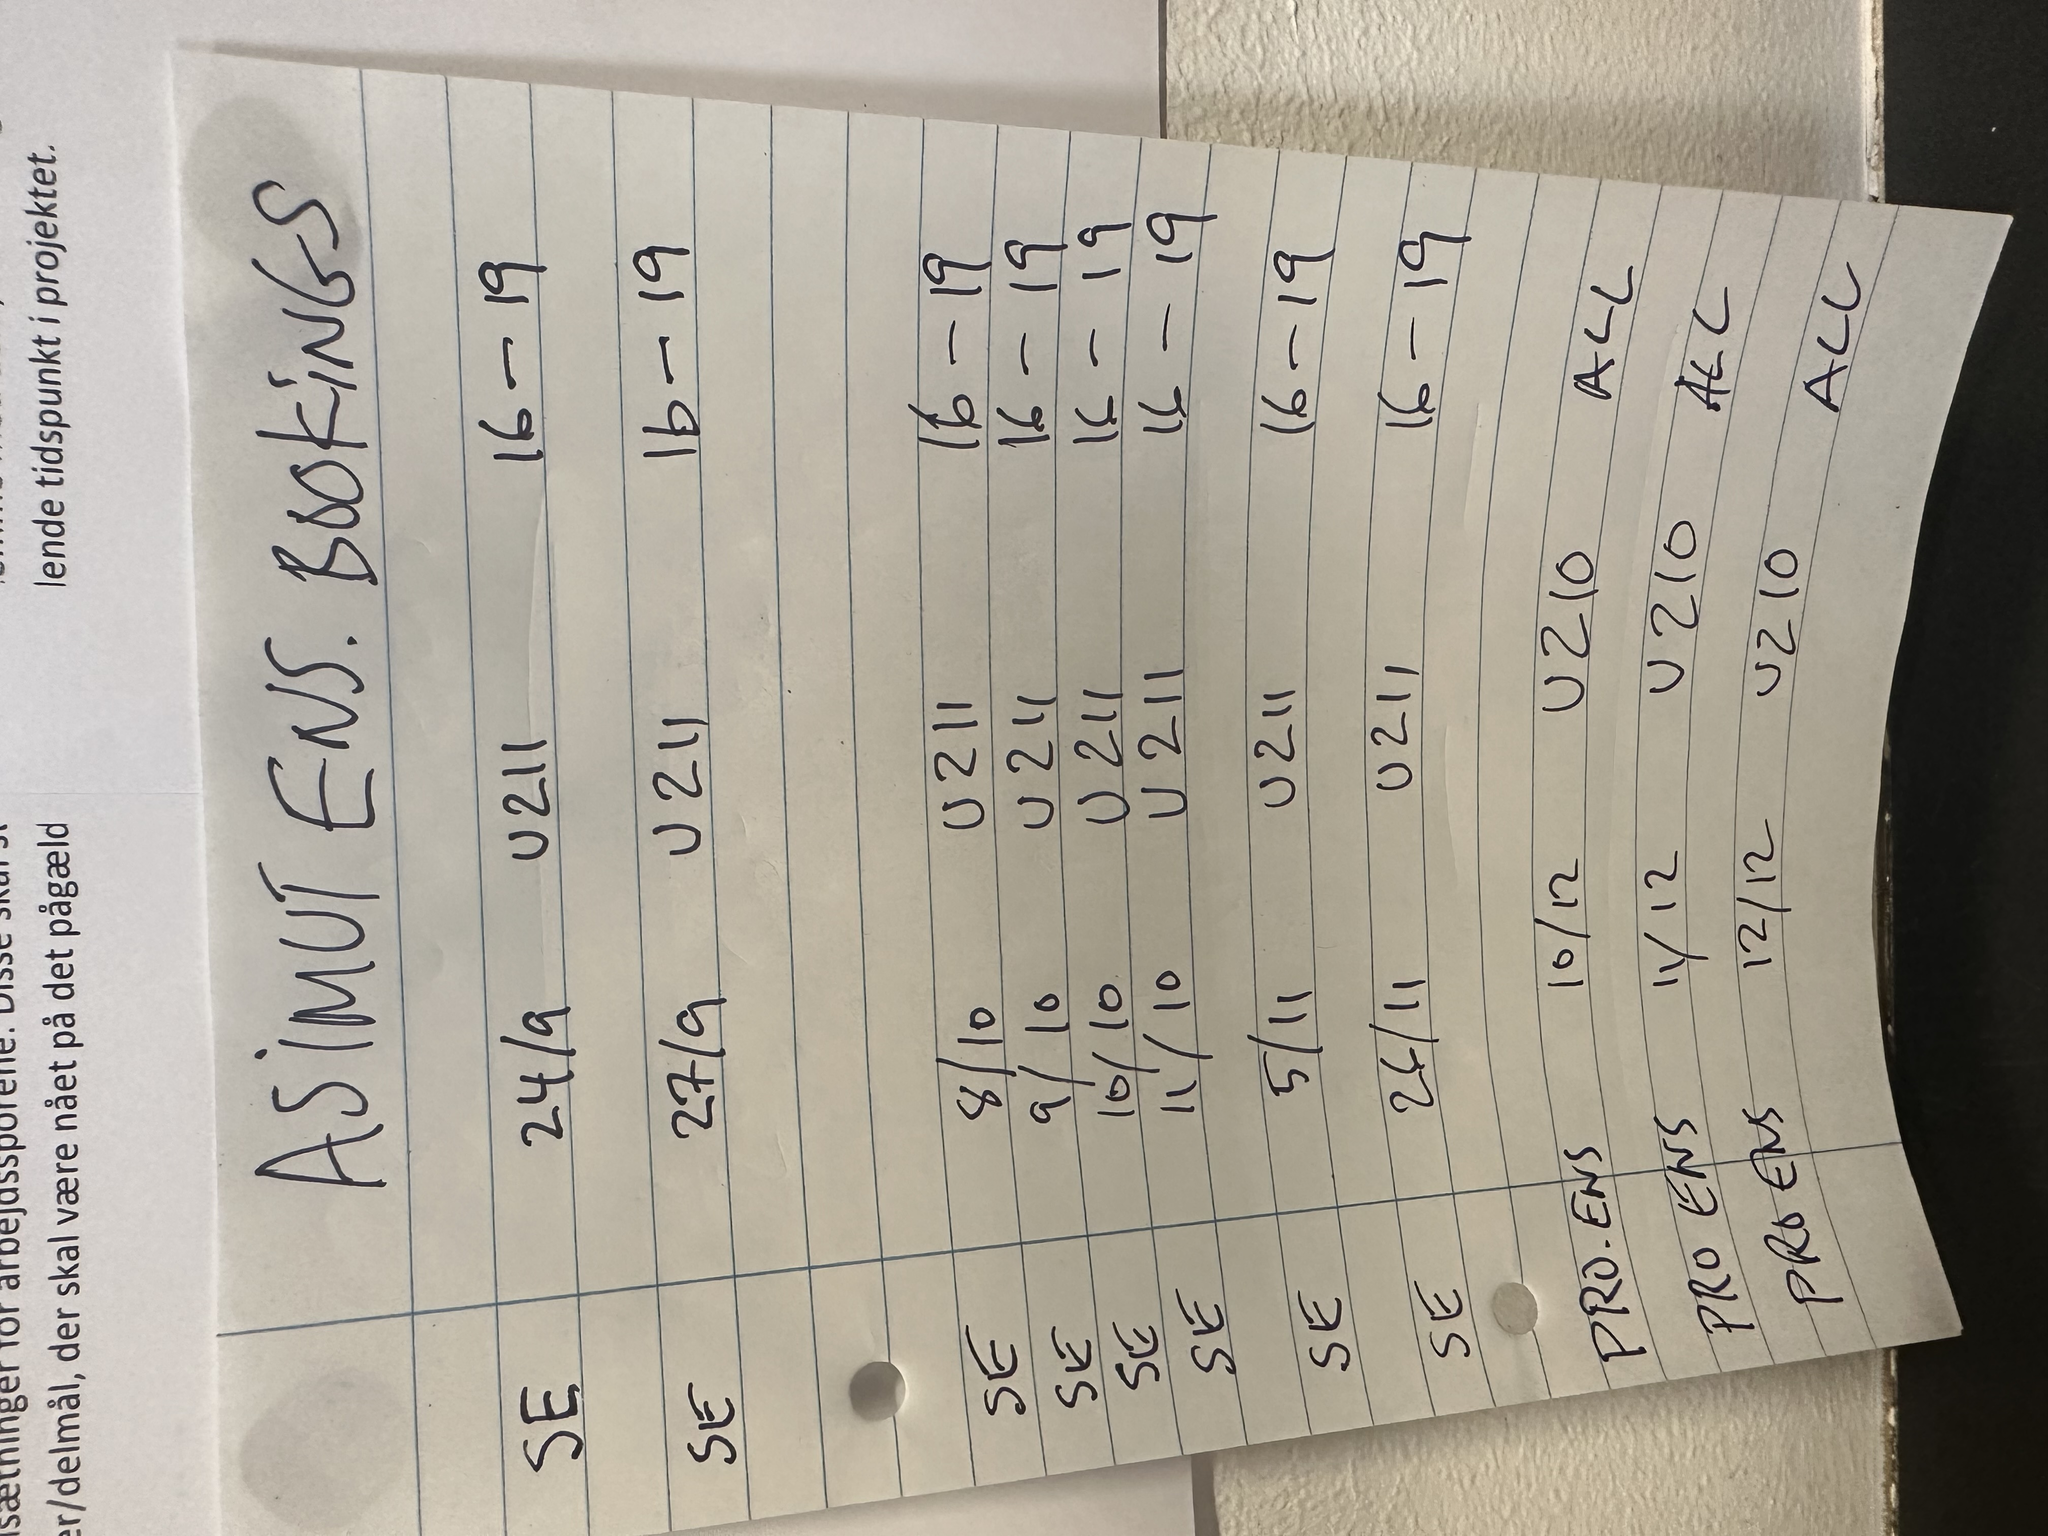 ASIMUT ENS. BOOKINGS
SE 24/9 U211 16-19
SE 27/9 U211 16-19
SE 8/10 U211 16-19
SE 9/10 U211 16-19
SE 10/10 U211 16-19
SE 11/10 U211 16-19
SE 5/11 U211 16-19
SE 26/11 U211 16-19
PRO.ENS 10/12 U210 ALL
PRO ENS 11/12 U210 ALL
PRO ENS 12/12 U210 ALL
sætninger for arbejdssporene. Disse skal
er/delmål, der skal være nået på det pågæld
lende tidspunkt i projektet.